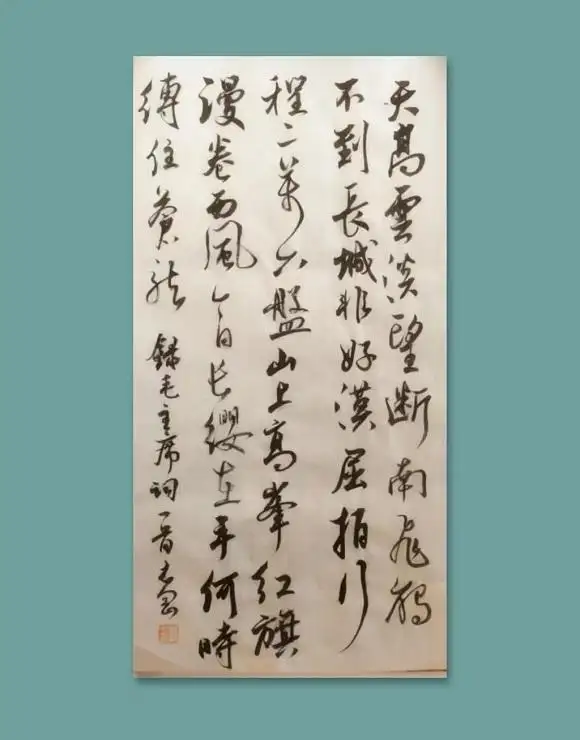 天高雲淡望断南飛鴈
不到長城非好漢屈指行
程二萬六盤山上高峯紅旗
漫卷西風今日长纓在手何時
縛住蒼龍 録毛主席詞一首